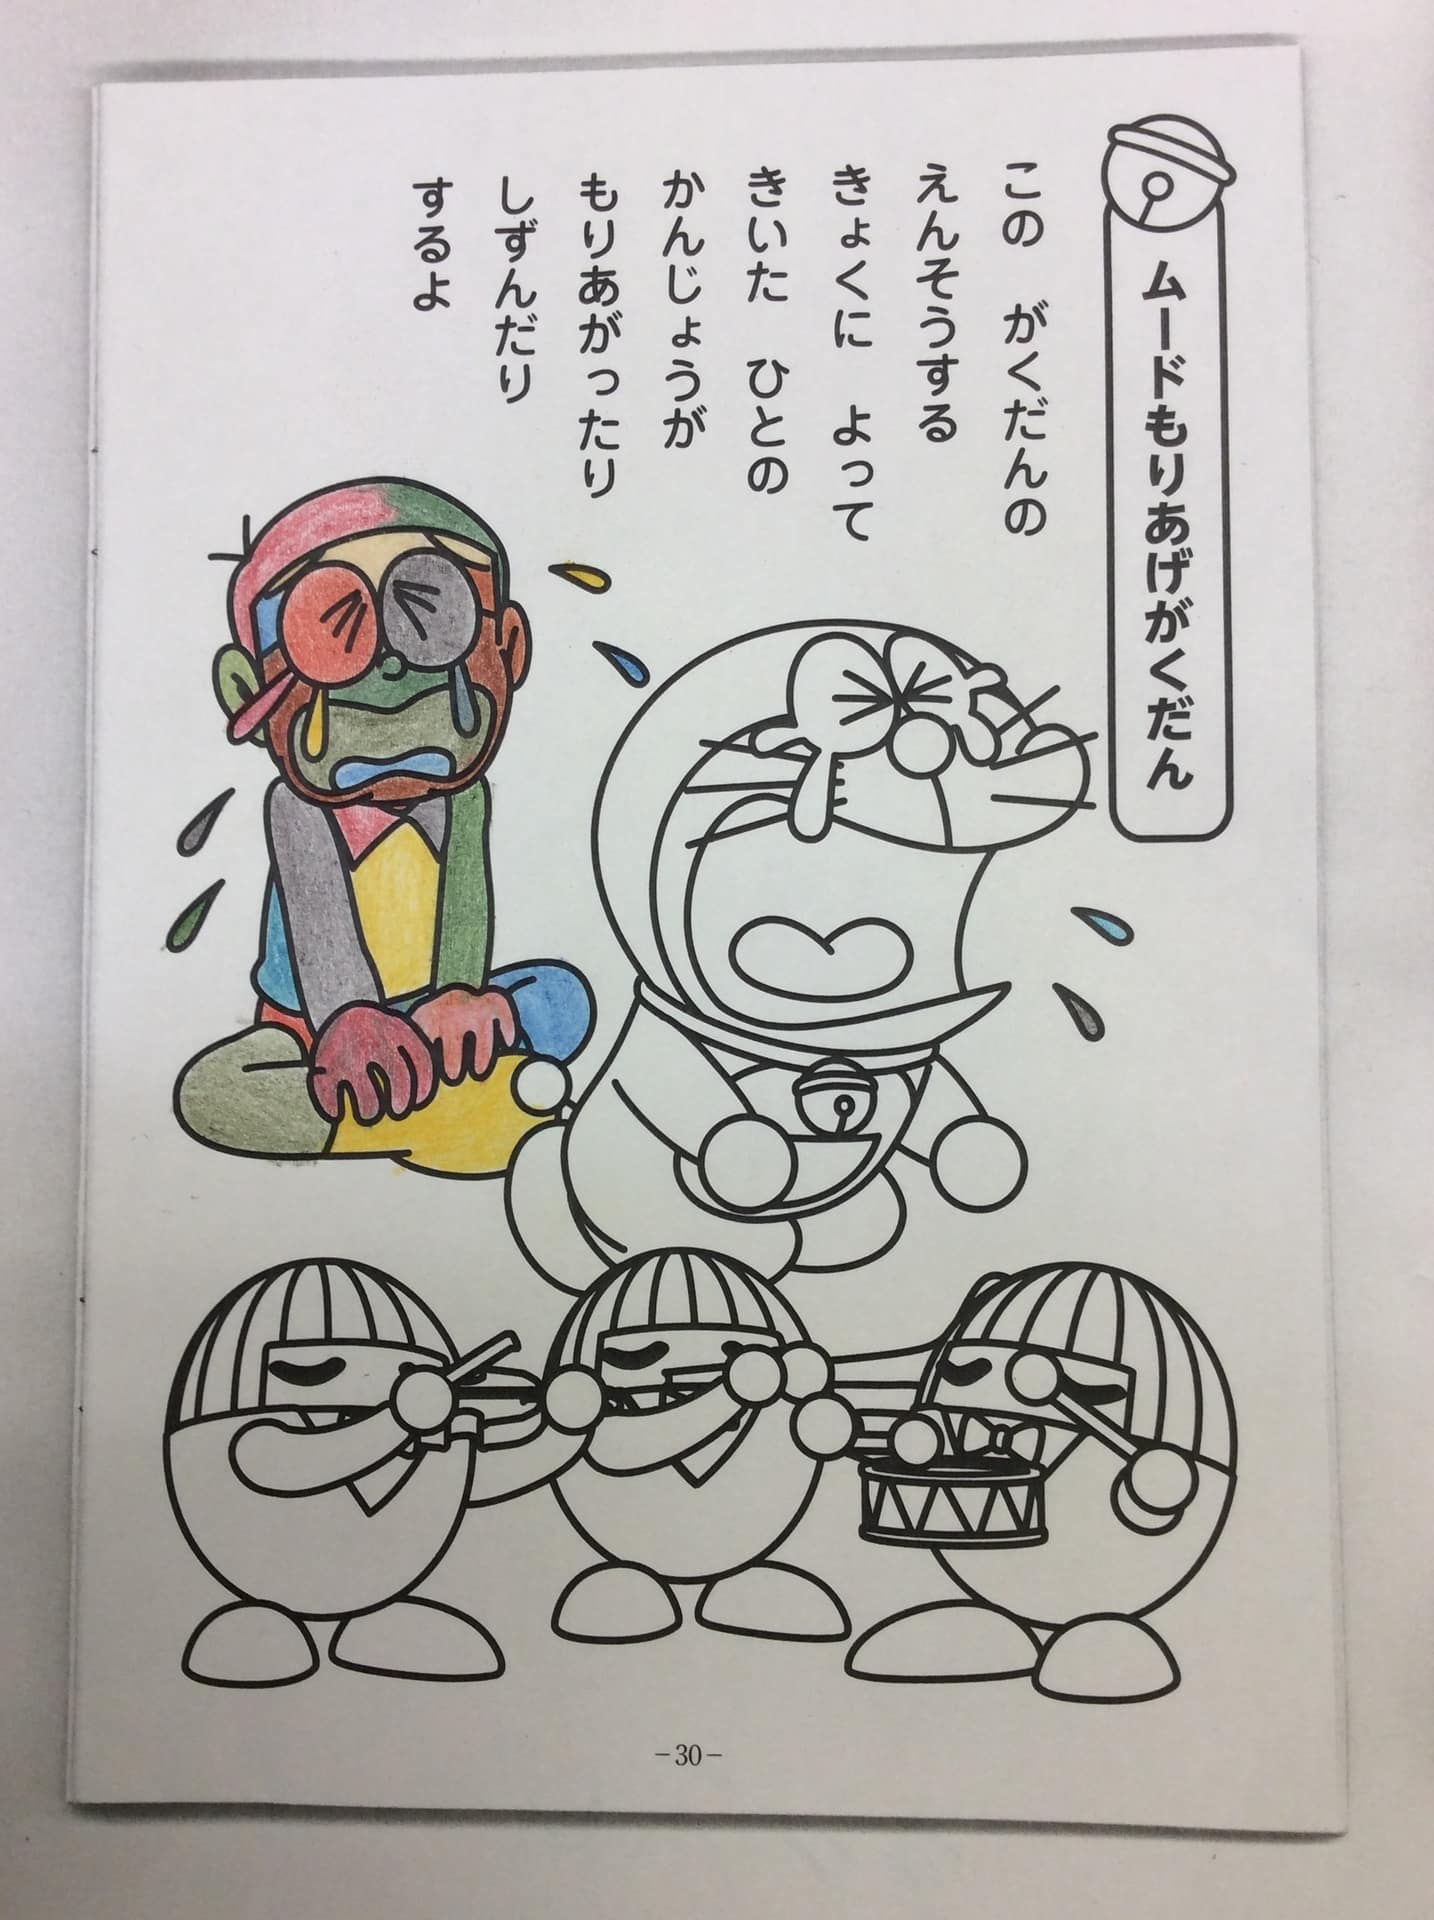 ムードもりあげがくだん
この がくだんの
えんそうする
きょくに よって
きいた ひとの
かんじょうが
もりあがったり
しずんだり
するよ
－30－